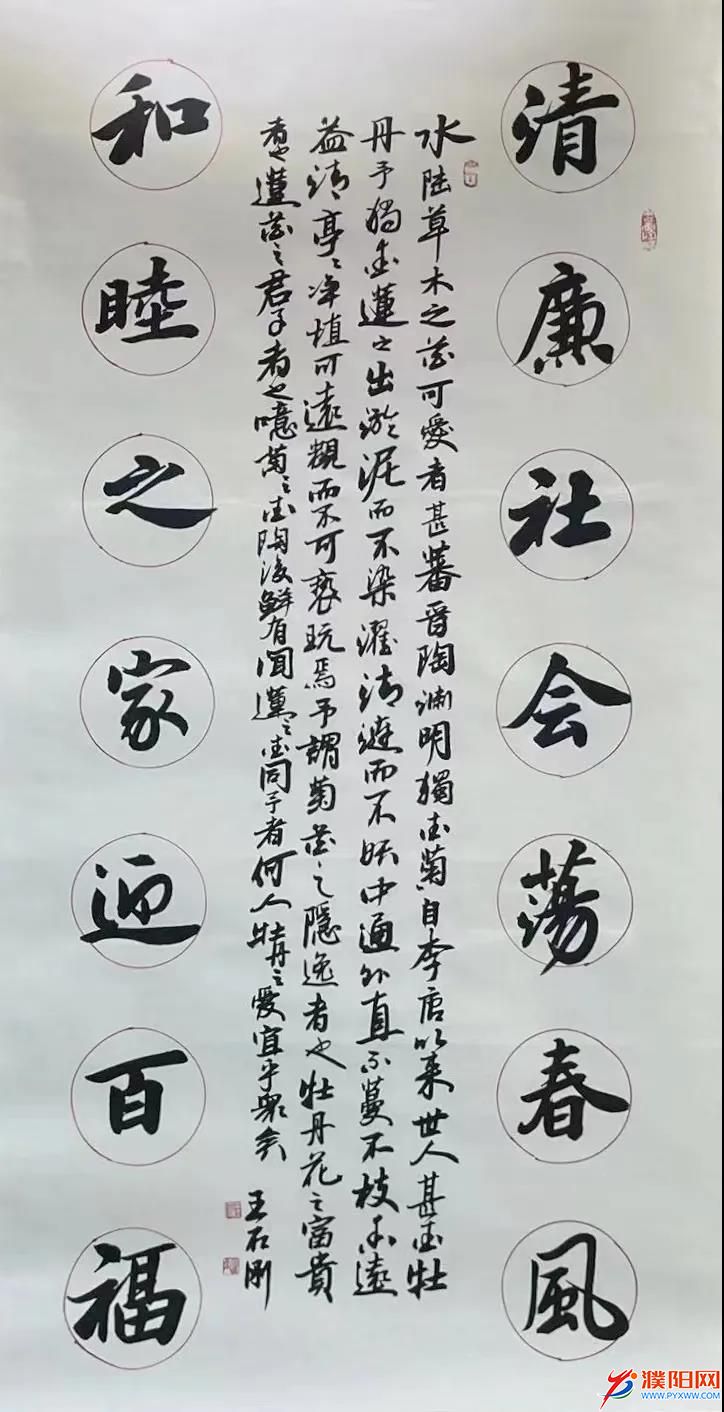 清廉社会荡春風
水陆草木之花可愛者甚蕃晋陶渊明獨爱菊自李唐以来世人甚爱牡
丹予獨爱蓮之出淤泥而不染濯清涟而不妖中通外直不蔓不枝香遠
益清亭亭净植可遠觀而不可亵玩焉予謂菊花之隱逸者也牡丹花之富貴
者也蓮花之君子者也噫菊之爱陶後鲜有闻蓮之爱同予者何人牡丹之愛宜乎眾矣
王石刚
和睦之家迎百福
濮阳网
WWW.PYXWW.COM